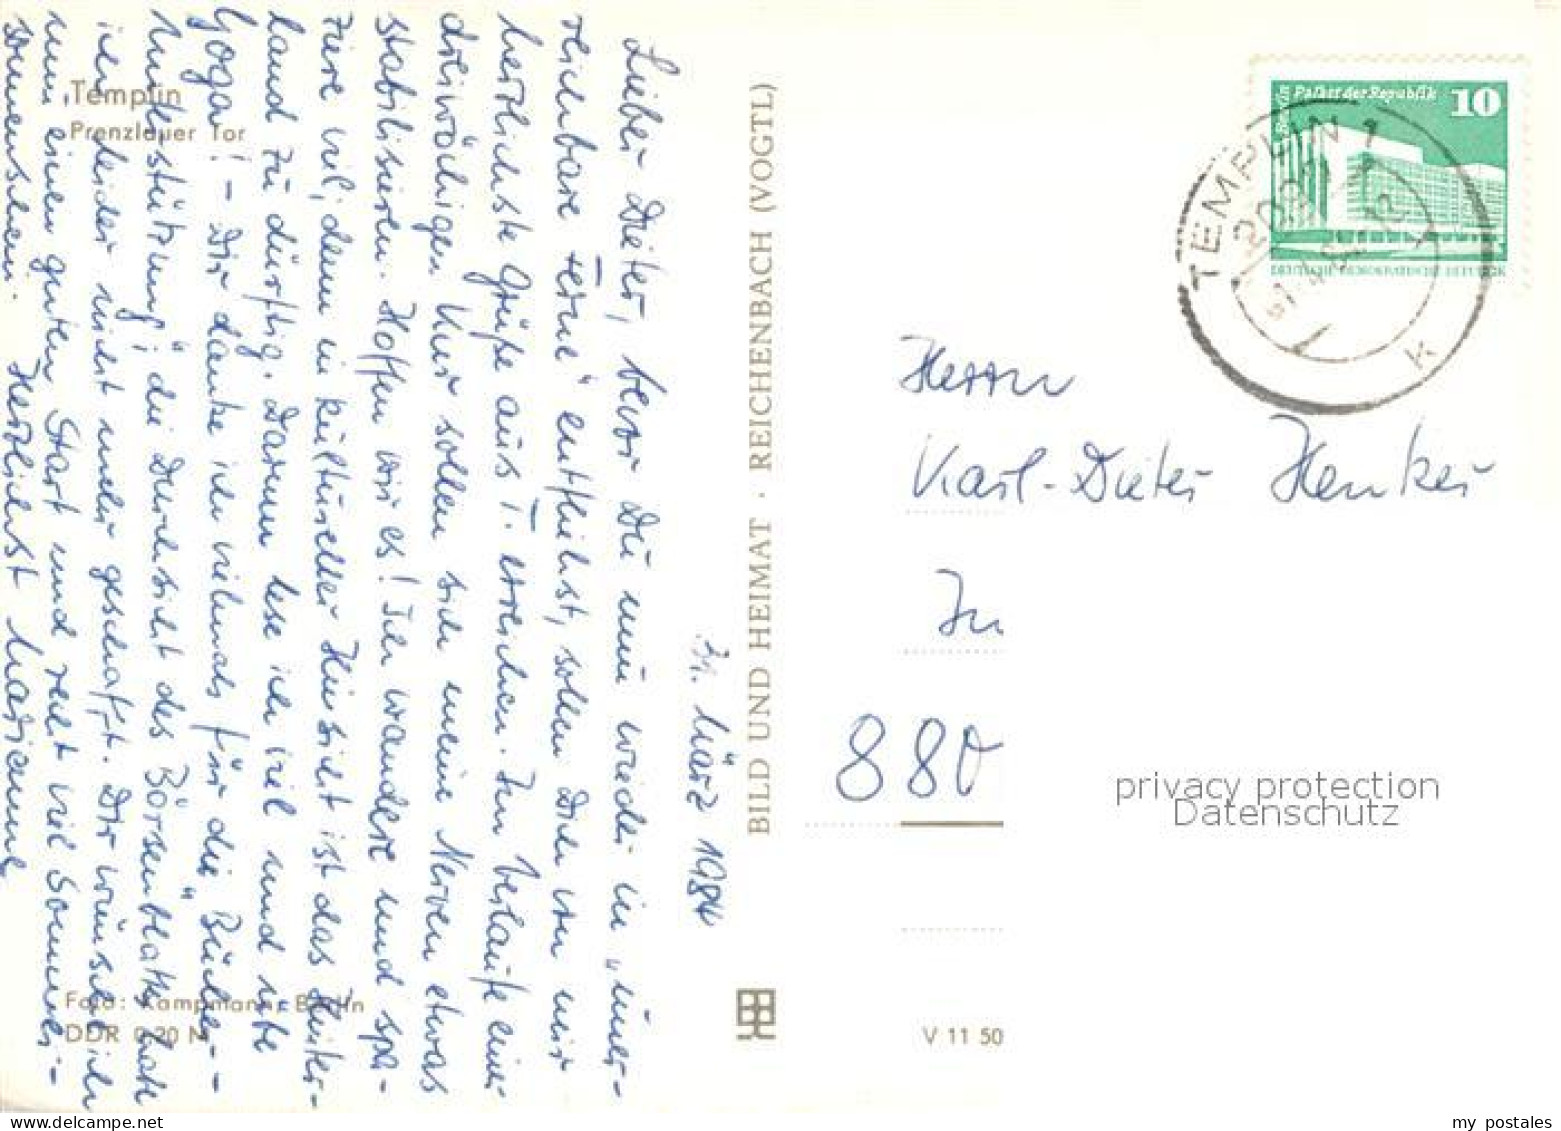 31. März 1984
Lieber Dieter, bevor Du nun wieder in „uner-
reichbare Ferne" entfleihst, sollen Dich von mir
herzlichste Grüße aus T. erreichen. Im Verlaufe einer
dreiwöchigen Kur sollen sich meine Nerven etwas
stabilisieren. Hoffen wir es! Ich wandere und spa-
ziere viel, denn in kultureller Hinsicht ist das Hinter-
land zu dürftig. Darum lese ich viel und übe
Yoga! – Dir danke ich vielmals für die Bücher-
Unterstützung; die Durchsicht des Börsenblattes habe
ich leider nicht mehr geschafft. Dir wünsche ich
nun einen guten Start und recht viel Sommer-
sonnenschein. Herzlichst Marianne
Templin
Prenzlauer Tor
Foto: Kampmann, Berlin
DDR 0,20 M
BILD UND HEIMAT · REICHENBACH (VOGTL)
V 11 50
Berlin Palast der Republik 10
DEUTSCHE DEMOKRATISCHE REPUBLIK
TEMPLIN 1
2090
k
Herrn
Karl-Dieter Henker
880
privacy protection
Datenschutz
my postales